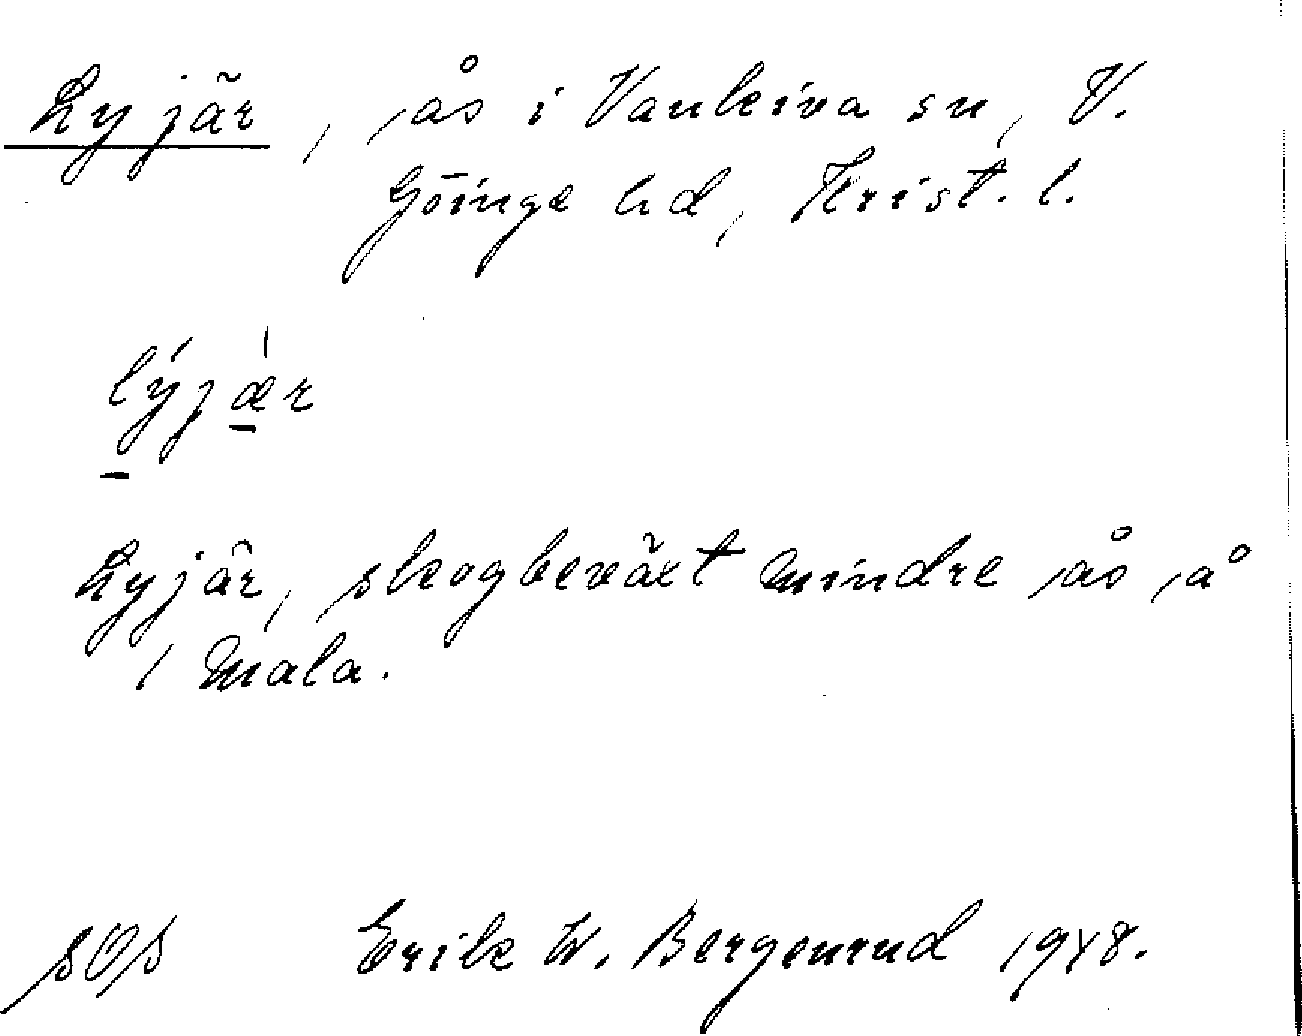 Lyjär, ås i Vankiva sn, V.
Göinge hd, Krist. l.
lýjǽr
Lyjär, skogbeväxt mindre ås å
1 Mala.
SOS Erik W. Bergenrud 1948.